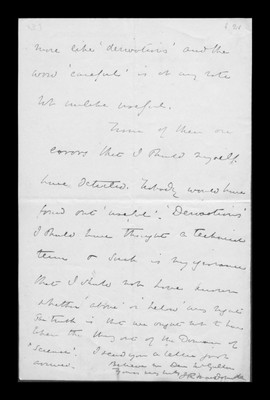 more like 'derivations' and the
word 'careful' is at any rate
not unlike useful.
None of these are
errors that I should myself
have detected. Nobody would have
found out 'useful'. 'Derivations'
I should have thought a technical
term & such is my ignorance
that I should not have known
whether 'above' or 'below' was right
The truth is that one ought not to have
taken the thing out of the Domain of
'Science'. I send you a letter just
arrived.
Believe me Dear
Yours very truly